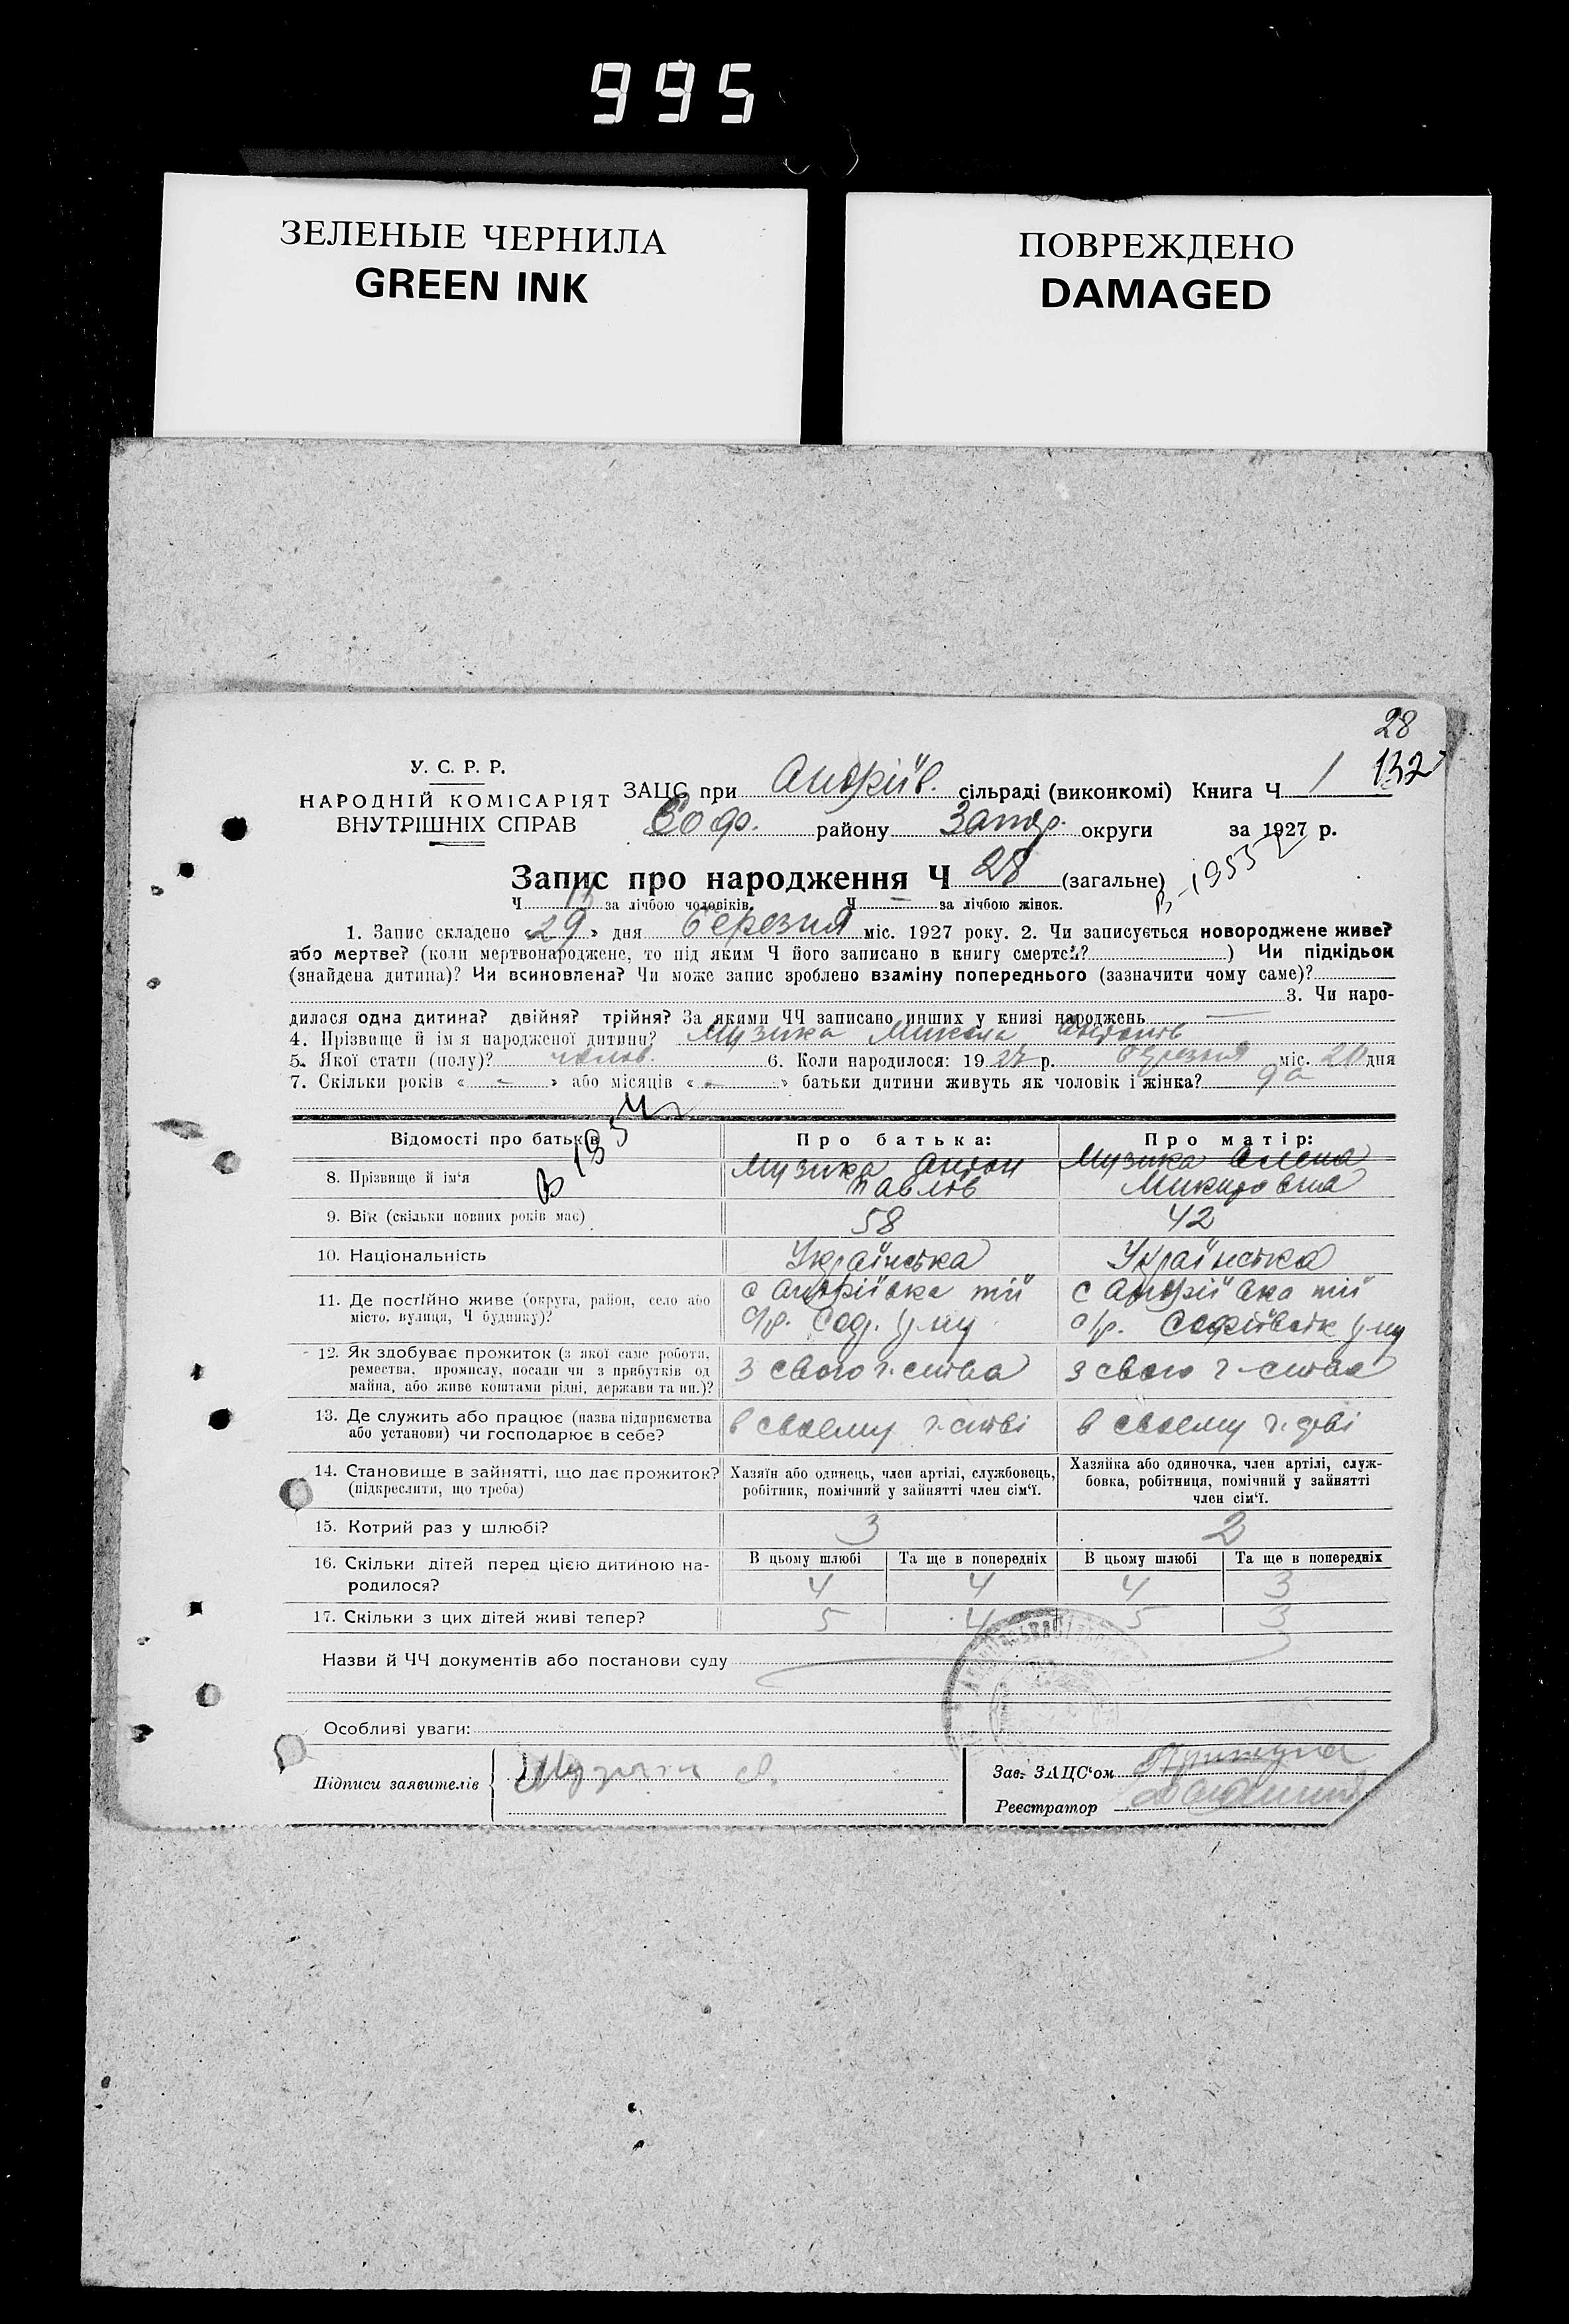 995
ЗЕЛЕНЫЕ ЧЕРНИЛА
GREEN INK
ПОВРЕЖДЕНО
DAMAGED
28
132
У. С. Р. Р.
НАРОДНІЙ КОМІСАРІЯТ
ВНУТРІШНІХ СПРАВ
ЗАЦС при Андріїв. сільраді (виконкомі) Книга Ч 1
Соф. району Запор. округи за 1927 р.
Запис про народження Ч 28 (загальне)
Ч за лічбою чоловіків. Ч — за лічбою жінок.
1. Запис складено «29» дня березня міс. 1927 року. 2. Чи записується новороджене живе?
або мертве? (коли мертвонароджене, то під яким Ч його записано в книгу смертей? ) Чи підкідьок
(знайдена дитина)? Чи всиновлена? Чи може запис зроблено взаміну попереднього (зазначити чому саме)?
3. Чи наро-
дилася одна дитина? двійня? трійня? За якими ЧЧ записано инших у книзі народжень —
4. Прізвище й ім'я народженої дитини? Музика Микола Антонів
5. Якої стати (полу)? чолов. 6. Коли народилося: 1927 р. березня міс. 20 дня
7. Скільки років « - » або місяців « - » батьки дитини живуть як чоловік і жінка? да
Відомості про батьків Про батька: Про матір:
8. Прізвище й ім'я Музика Антон Павлов Музика Олена Микитовна
9. Вік (скільки повних років має) 58 42
10. Національність Українська Українська
11. Де постійно живе (округа, район, село або с Андріївка тії с Андріївка тії
місто, вулиця, Ч будинку)? с/р. Соф. р-ну с/р. Софіївськ р-ну
12. Як здобуває прожиток (з якої саме роботи,
ремества, промислу, посади чи з прибутків од з свого г-ства з свого г-ства
майна, або живе коштами рідні, держави та ин.)?
13. Де служить або працює (назва підприємства в своему г-стві в своему г-стві
або установи) чи господарює в себе?
14. Становище в зайнятті, що дає прожиток? Хазяїн або одинець, член артілі, службовець, Хазяйка або одиночка, член артілі, служ-
(підкреслити, що треба) робітник, помічний у зайнятті член сім'ї. бовка, робітниця, помічний у зайнятті
член сім'ї.
15. Котрий раз у шлюбі? 3 2
16. Скільки дітей перед цією дитиною на- В цьому шлюбі Та ще в попередніх В цьому шлюбі Та ще в попередніх
родилося? 4 4 4 3
17. Скільки з цих дітей живі тепер? 5 4 5 3
Назви й ЧЧ документів або постанови суду
Особливі уваги:
Підписи заявителів
Зав. ЗАЦС'ом
Реєстратор